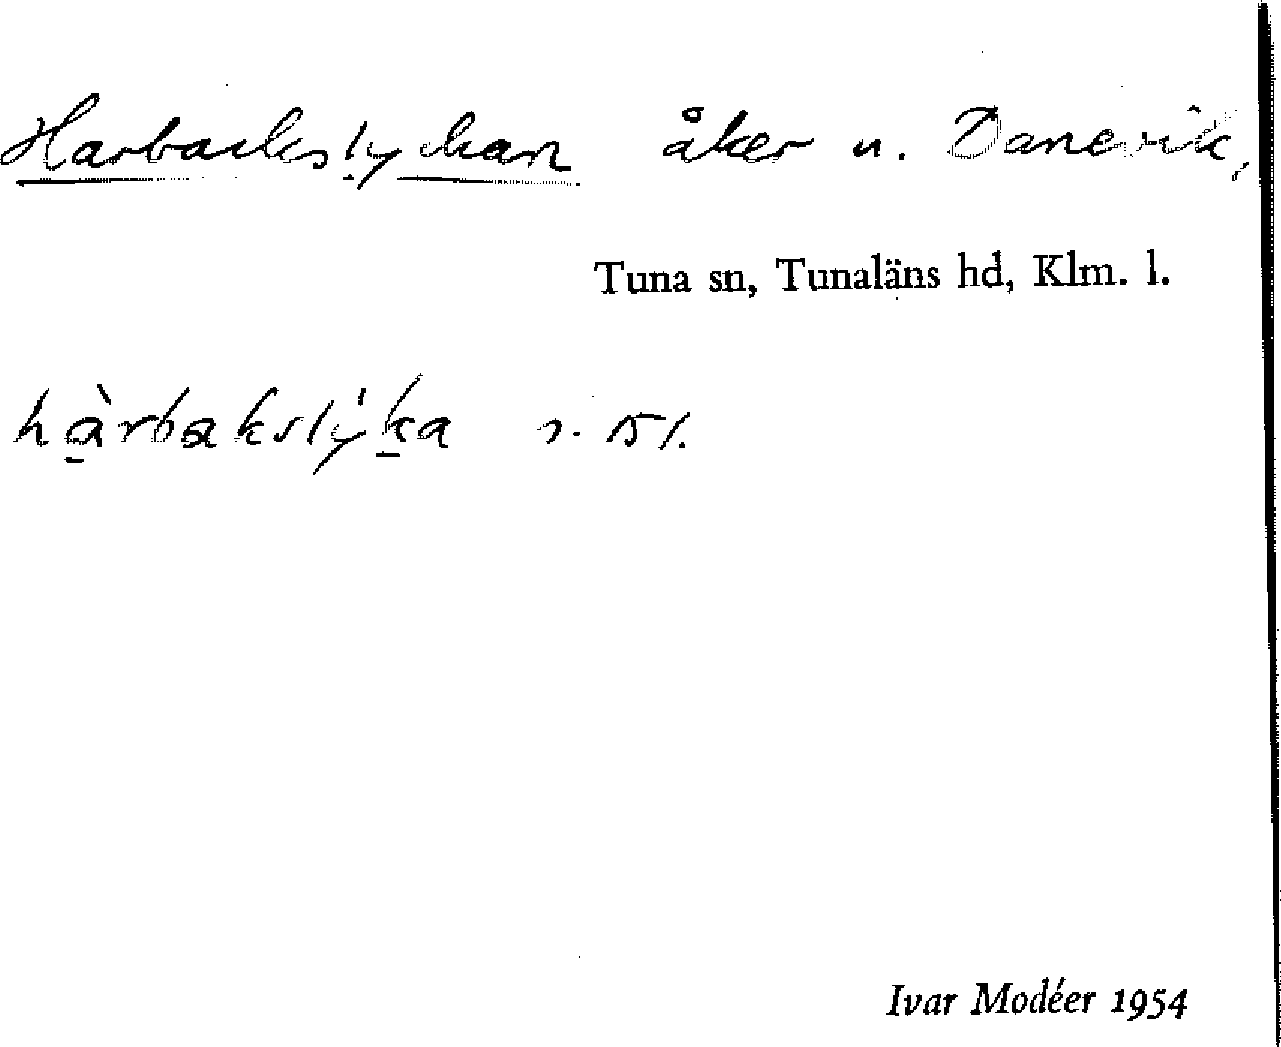 Harbackslyckan åker u. Danevik,
Tuna sn, Tunaläns hd, Klm. l.
hàrbakslýka
Ivar Modéer 1954